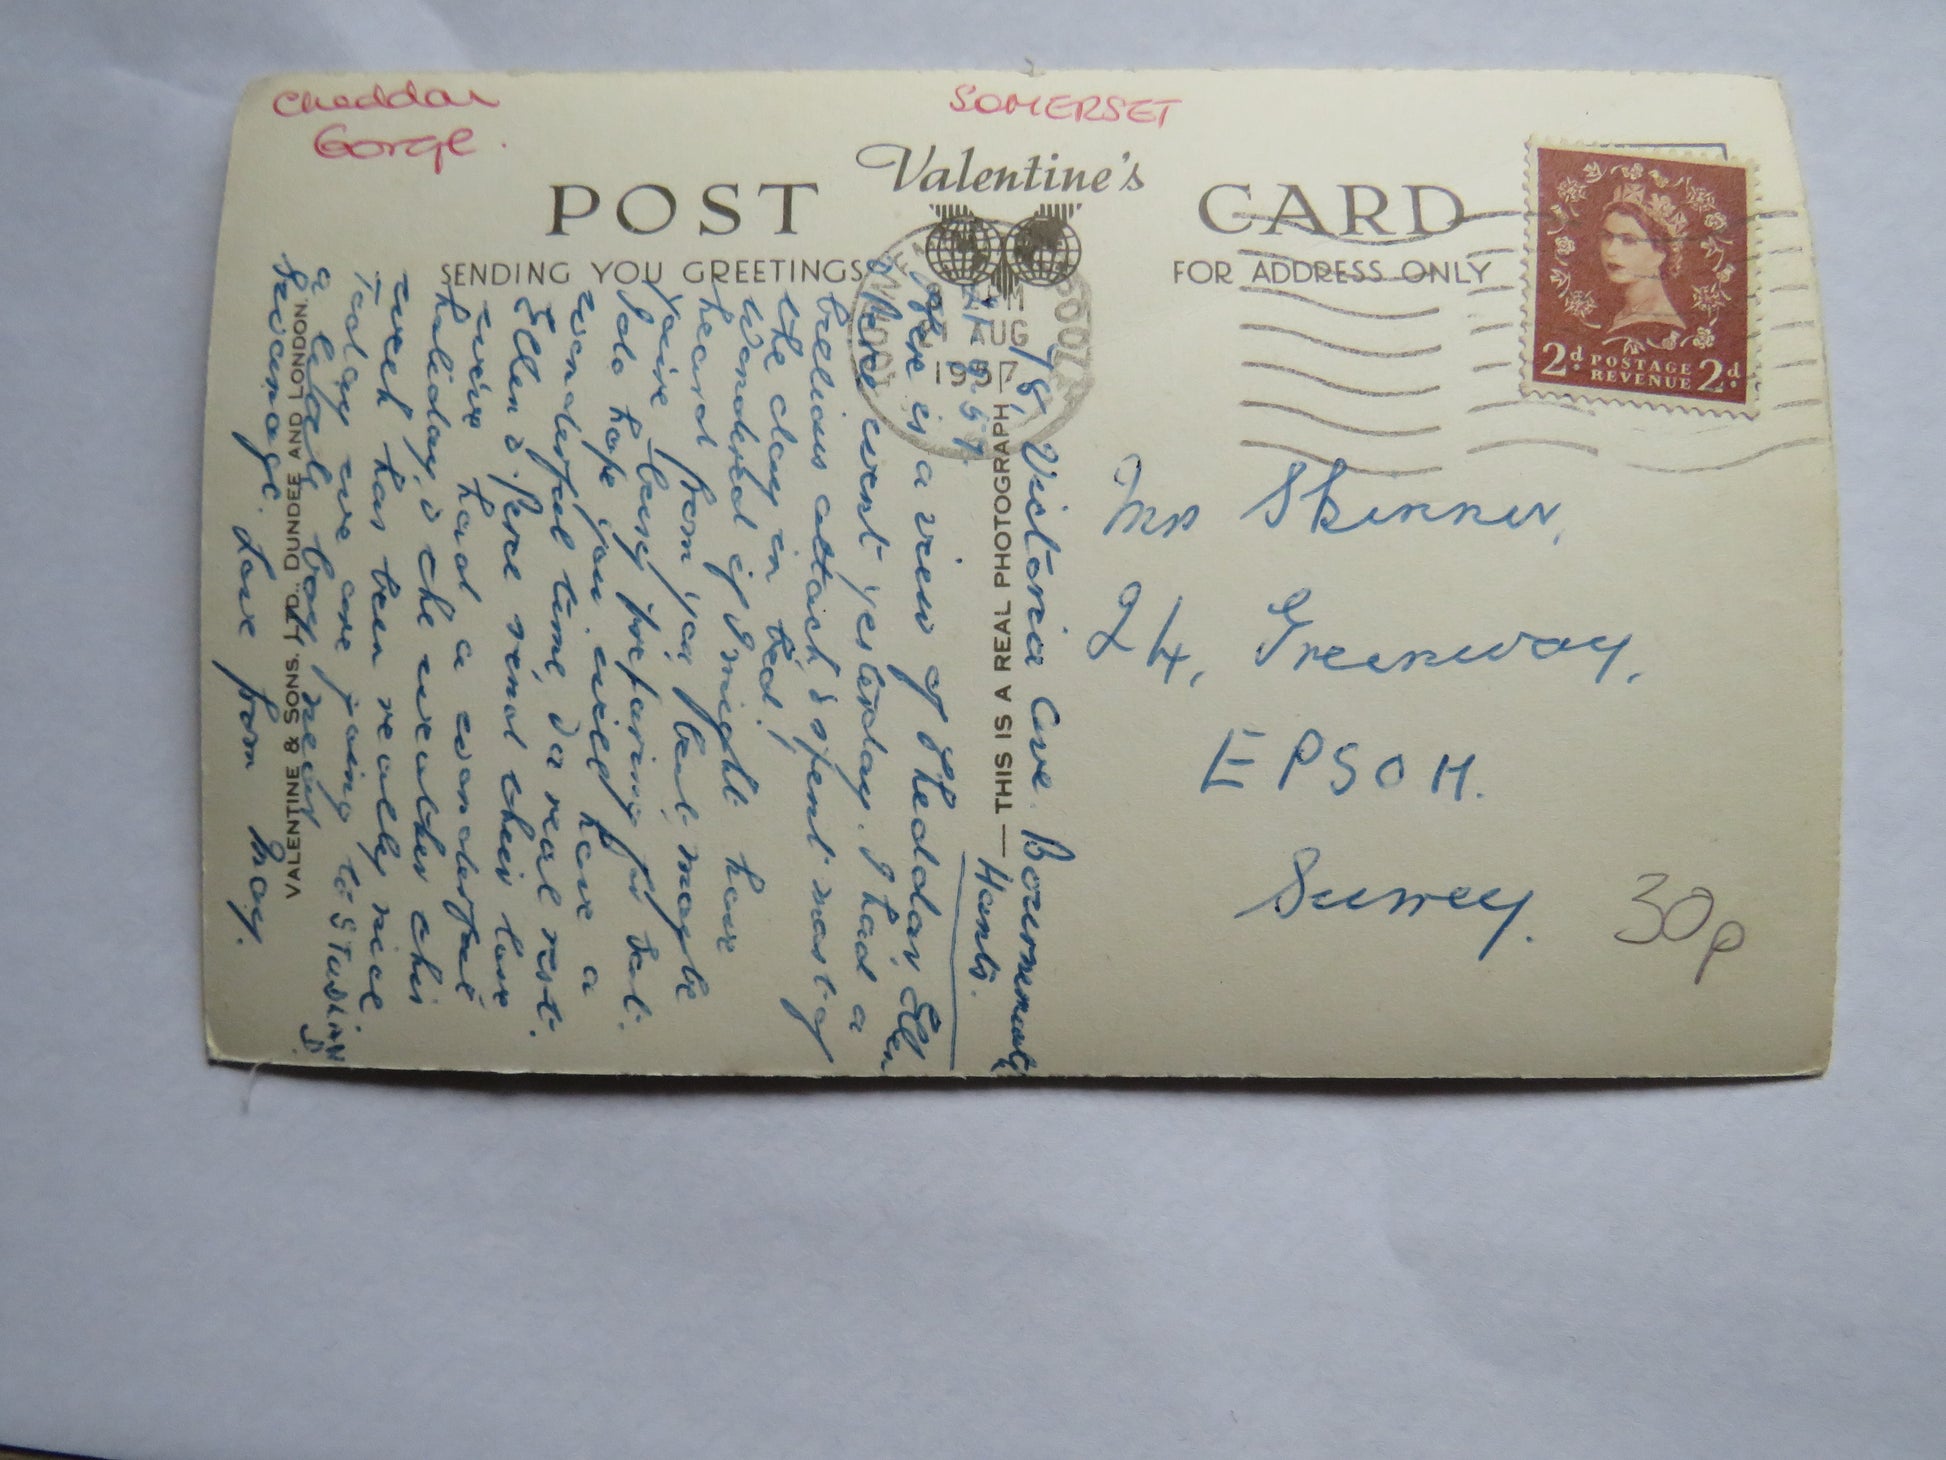 Cheddar
Gorge.
SOMERSET
Valentine's
POST CARD
SENDING YOU GREETINGS
FOR ADDRESS ONLY
AUG
1957
2d POSTAGE REVENUE 2d.
THIS IS A REAL PHOTOGRAPH
VALENTINE & SONS, LTD., DUNDEE AND LONDON.
Victoria Ave. Bournemouth
Hants.
Here is a view of Cheddar, Ellen
& Perce went yesterday. I had a
bilious attack & spent most of
the day in bed!
Wondered if I might have
heard from you, but maybe
you're busy preparing for Sat.
I do hope you will have a
wonderful time, & a real rest.
Ellen & Perce send their love
we've had a wonderful
holiday, & the weather this
week has been really nice
Today we are going to STUDLAND
a lovely bay near
Swanage. Love from May.
Mrs Skinner,
24, Greenway,
EPSOM.
Surrey.
30p